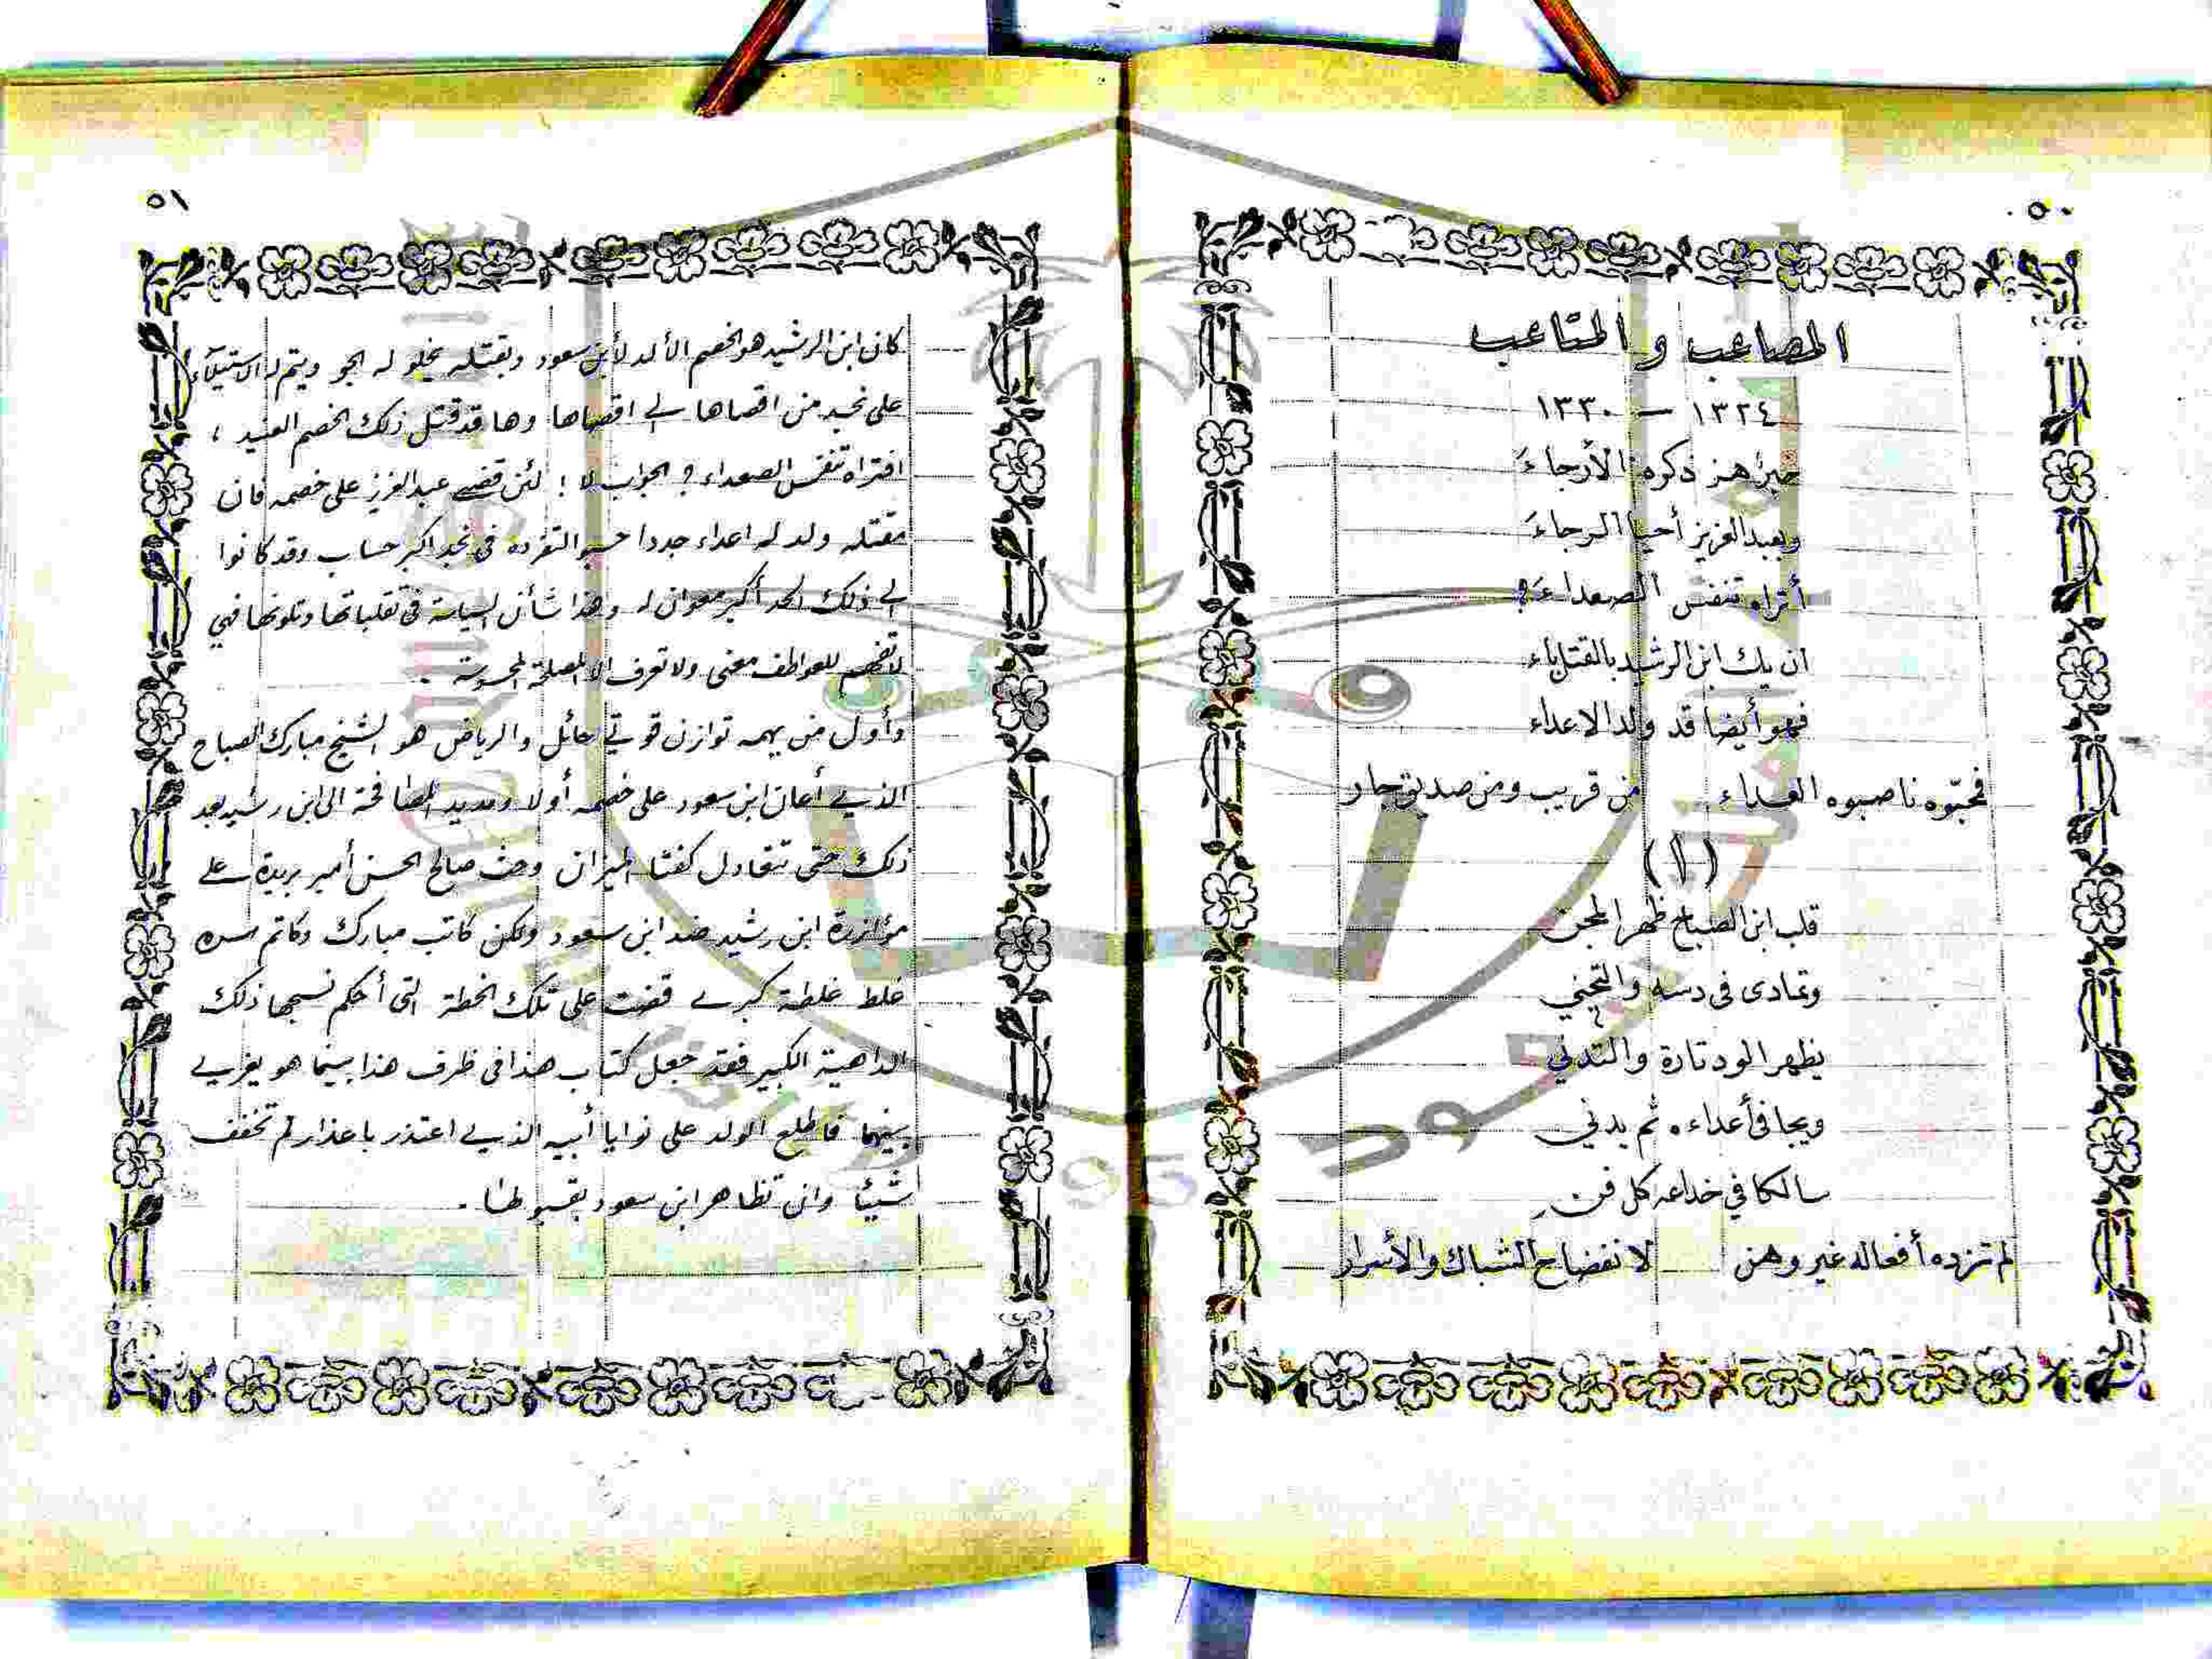 ٥٠
المصاعب والمتاعب
١٣٢٤ – ١٣٣٠
خبرٌ هز ذكره الأرجاءَ
وبعبدالعزيز أحيا الرجاءَ
أتراه تنفس الصعداءَ؟
ان يك ابن الرشيد بالقتل باء
فهو أيضا قد ولد الاعداء
فمحبّوه ناصبوه العداء من قريب ومن صديق جار
(١)
قلب ابن الصباح ظهر المجن
وتمادى في دسه والتجني
يظهر الود تارة والتدني
ويجافي أعداءه ثم يدني
سالكا في خداعه كل فن
لم تزده أفعاله غير وهن لانفضاح الشباك والأسرار
٥١
كان ابن الرشيد هو الخصم الألد لأبن سعود وبقتله يخلو له الجو ويتم له الاستيلاء
على نجد من اقصاها لي اقصاها وها قد قتل ذلك الخصم العنيد ،
افتراه تنفس الصعداء ؟ الجواب لا ! لئن قضى عبدالعزيز على خصمه فان
مقتله ولد له اعداء جددا حسبوا لتفرده في نجد اكبر حساب وقد كانوا
الى ذلك الحد أكبر معوان له وهذا شأن السياسة في تقلباتها وتلونها فهي
لا تفهم للعواطف معنى ولا تعرف الا المصلحة المحسوسة .
وأول من يهمه توازن قوتي حائل والرياض هو الشيخ مبارك الصباح
الذي أعان ابن سعود على خصمه أولا ومد يد المصافحة الى ابن رشيد بعد
ذلك حتى تتعادل كفتا الميزان وحث صالح الحسن أمير بريدة على
مؤازرة ابن رشيد ضد ابن سعود ولكن كاتب مبارك وكاتم سره
غلط غلطة كبرى قضت على تلك الخطة التي أحكم نسجها ذلك
الداهية الكبير فقد جعل كتاب هذا في ظرف هذا بينما هو يغري
بينهما فاطلع الولد على نوايا أبيه الذي اعتذر باعذار لم تخفف
شيئا وان تظاهر ابن سعود بقبولها .